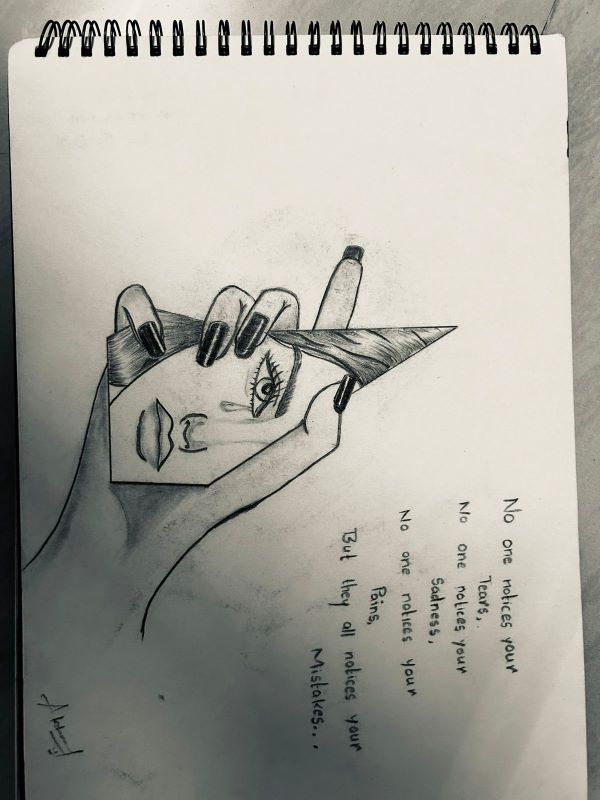 No one notices your
Tears,.
No one notices your
Sadness,
No one notices your
Pains,
But they all notices your
Mistakes...